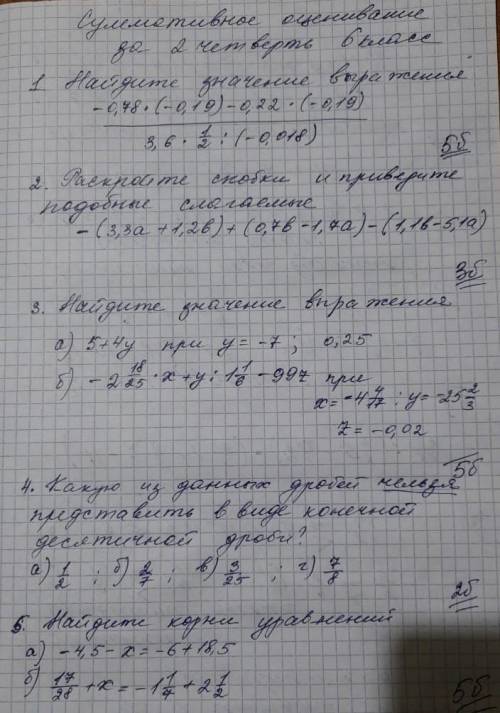 Сулемативное оценивание
за 2 четверть 6 класс
1 Найдите значение выражения
-0,78·(-0,19)-0,22·(-0,19)
3,6·1/2:(-0,018)
5б
2. Раскройте скобки и приведите
подобные слагаемые
-(3,3а+1,2в)+(0,7в-1,7а)-(1,1в-5,1а)
3б
3. Найдите значение выражения
а) 5+4у при у=-7; 0,25
б) -2 18/25·х+у:1 1/6-99z при
х=-4 4/17; у=-25 2/3
z=-0,02
5б
4. Какую из данных дробей нельзя
представить в виде конечной
десятичной дроби?
а) 1/2; б) 2/7; в) 3/25; г) 7/8
2б
5. Найдите корни уравнений
а) -4,5-х=-6+18,5
б) 17/28+х=-1 1/7+2 1/2
5б